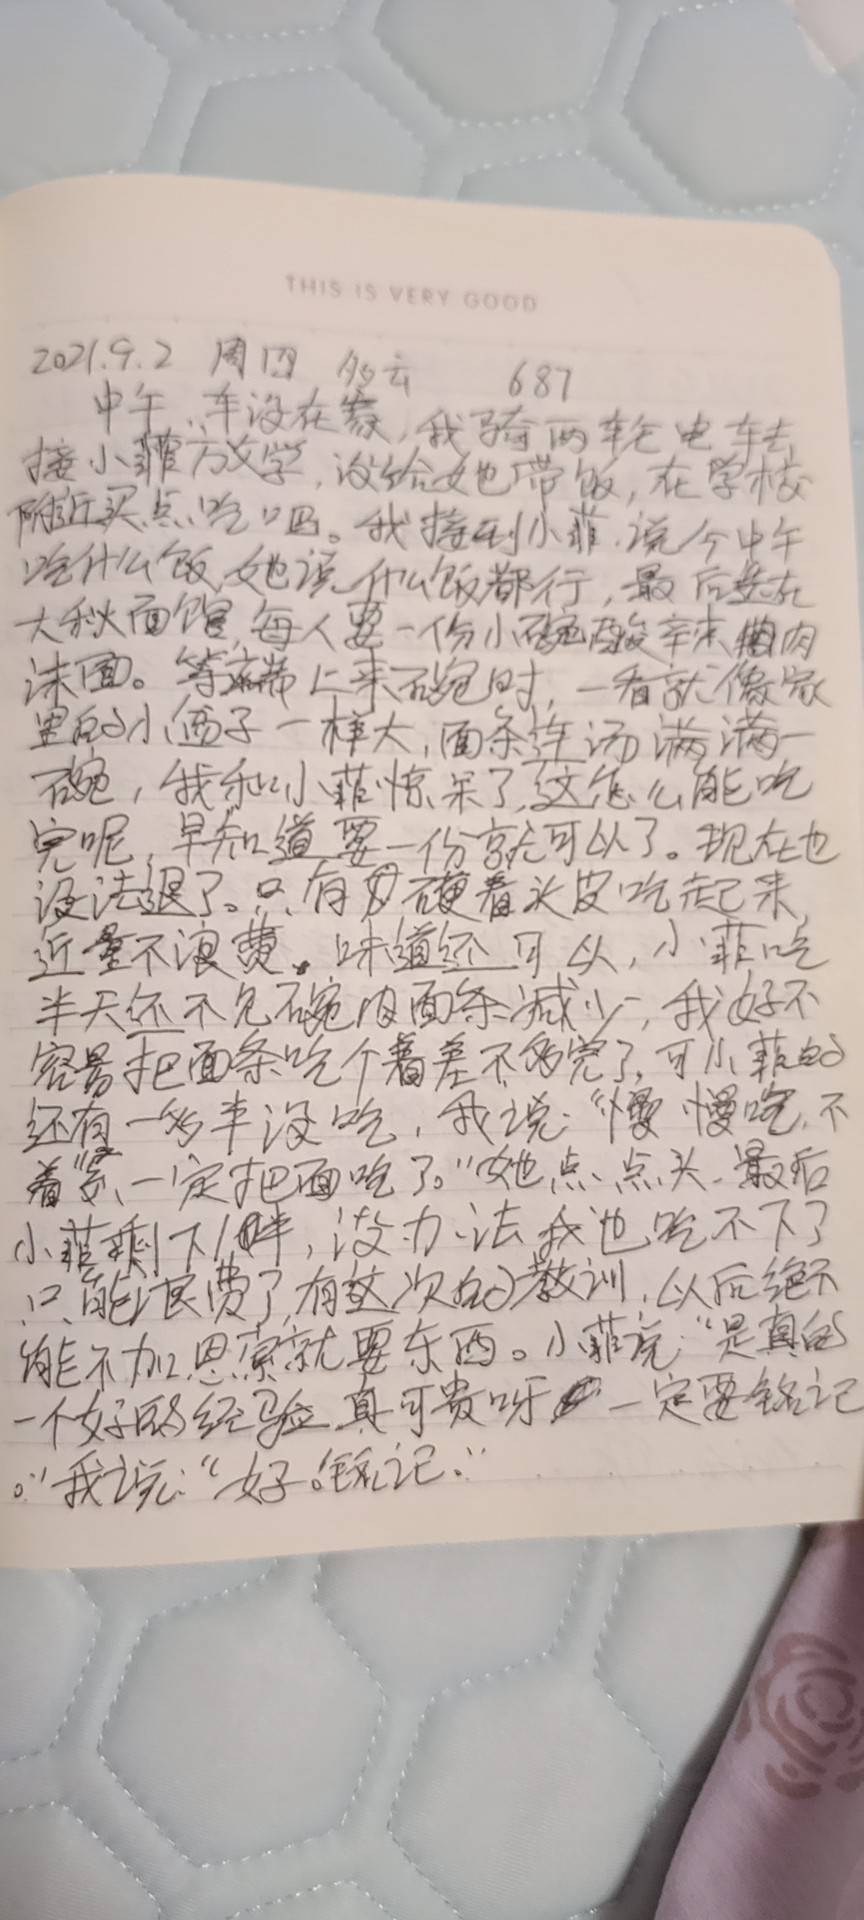 THIS IS VERY GOOD
2021.9.2 周四 多云 687
中午,车没在家,我骑两轮电车去
接小菲放学,没给她带饭,在学校
附近买点吃吧。我接到小菲,说今中午
吃什么饭,她说什么饭都行,最后是在
大秋面馆,每人要一份小碗酸辣肉
沫面。等端上来碗时,一看就像家
里的小盔子一样大,面条连汤满满一
碗,我和小菲惊呆了,这怎么能吃
完呢,早知道要一份就可以了。现在也
没法退了。只有硬着头皮吃起来,
近量不浪费。味道还可以,小菲吃
半天还不见碗内面条减少,我好不
容易把面条吃个着差不多完了,可小菲的
还有一多半没吃,我说:“慢慢吃,不
着紧,一定把面吃了。”她点点头。最后
小菲剩下小半,没办法我也吃不下了
只能浪费了,有这次的教训,以后绝不
能不加思索就要东西。小菲说:“是真的
一个好的经验真可贵呀 一定要铭记
。”我说:“好。铭记。”